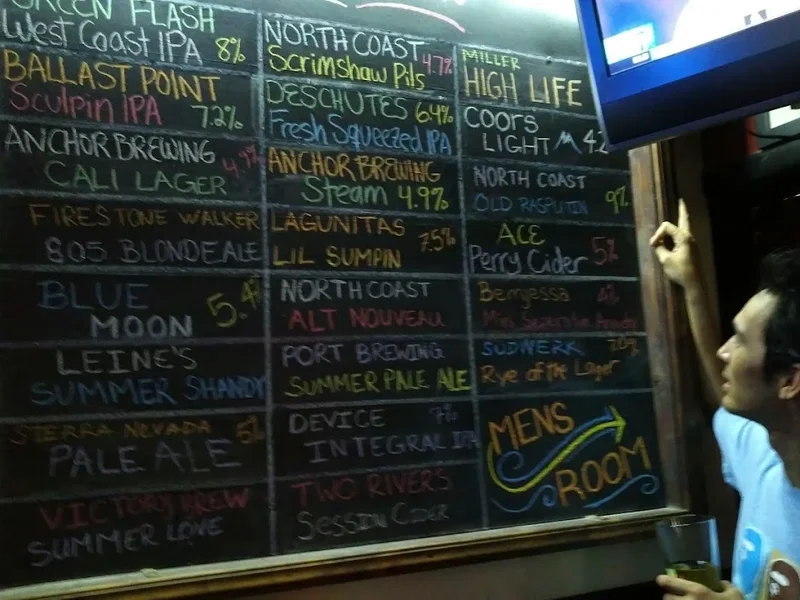 GREEN FLASH
West Coast IPA 8%
BALLAST POINT
Sculpin IPA 7.2%
ANCHOR BREWING
CALI LAGER 4.9%
FIRESTONE WALKER
805 BLONDE ALE
BLUE
MOON 5.4%
LEINE'S
SUMMER SHANDY
SIERRA NEVADA 5%
PALE ALE
VICTORY BREW
SUMMER LOVE
NORTH COAST
Scrimshaw Pils 4.7%
DESCHUTES 6.4%
Fresh Squeezed IPA
ANCHOR BREWING
Steam 4.9%
LAGUNITAS
LIL SUMPIN 7.5%
NORTH COAST
ALT NOUVEAU
PORT BREWING
SUMMER PALE ALE
DEVICE 7%
INTEGRAL IPA
TWO RIVERS
Session Cider
MILLER
HIGH LIFE
COORS
LIGHT 4.2
NORTH COAST
OLD RASPUTIN 9%
ACE
Perry Cider 5%
Berryessa
SUDWERK
Rye of the Lager
MENS
ROOM